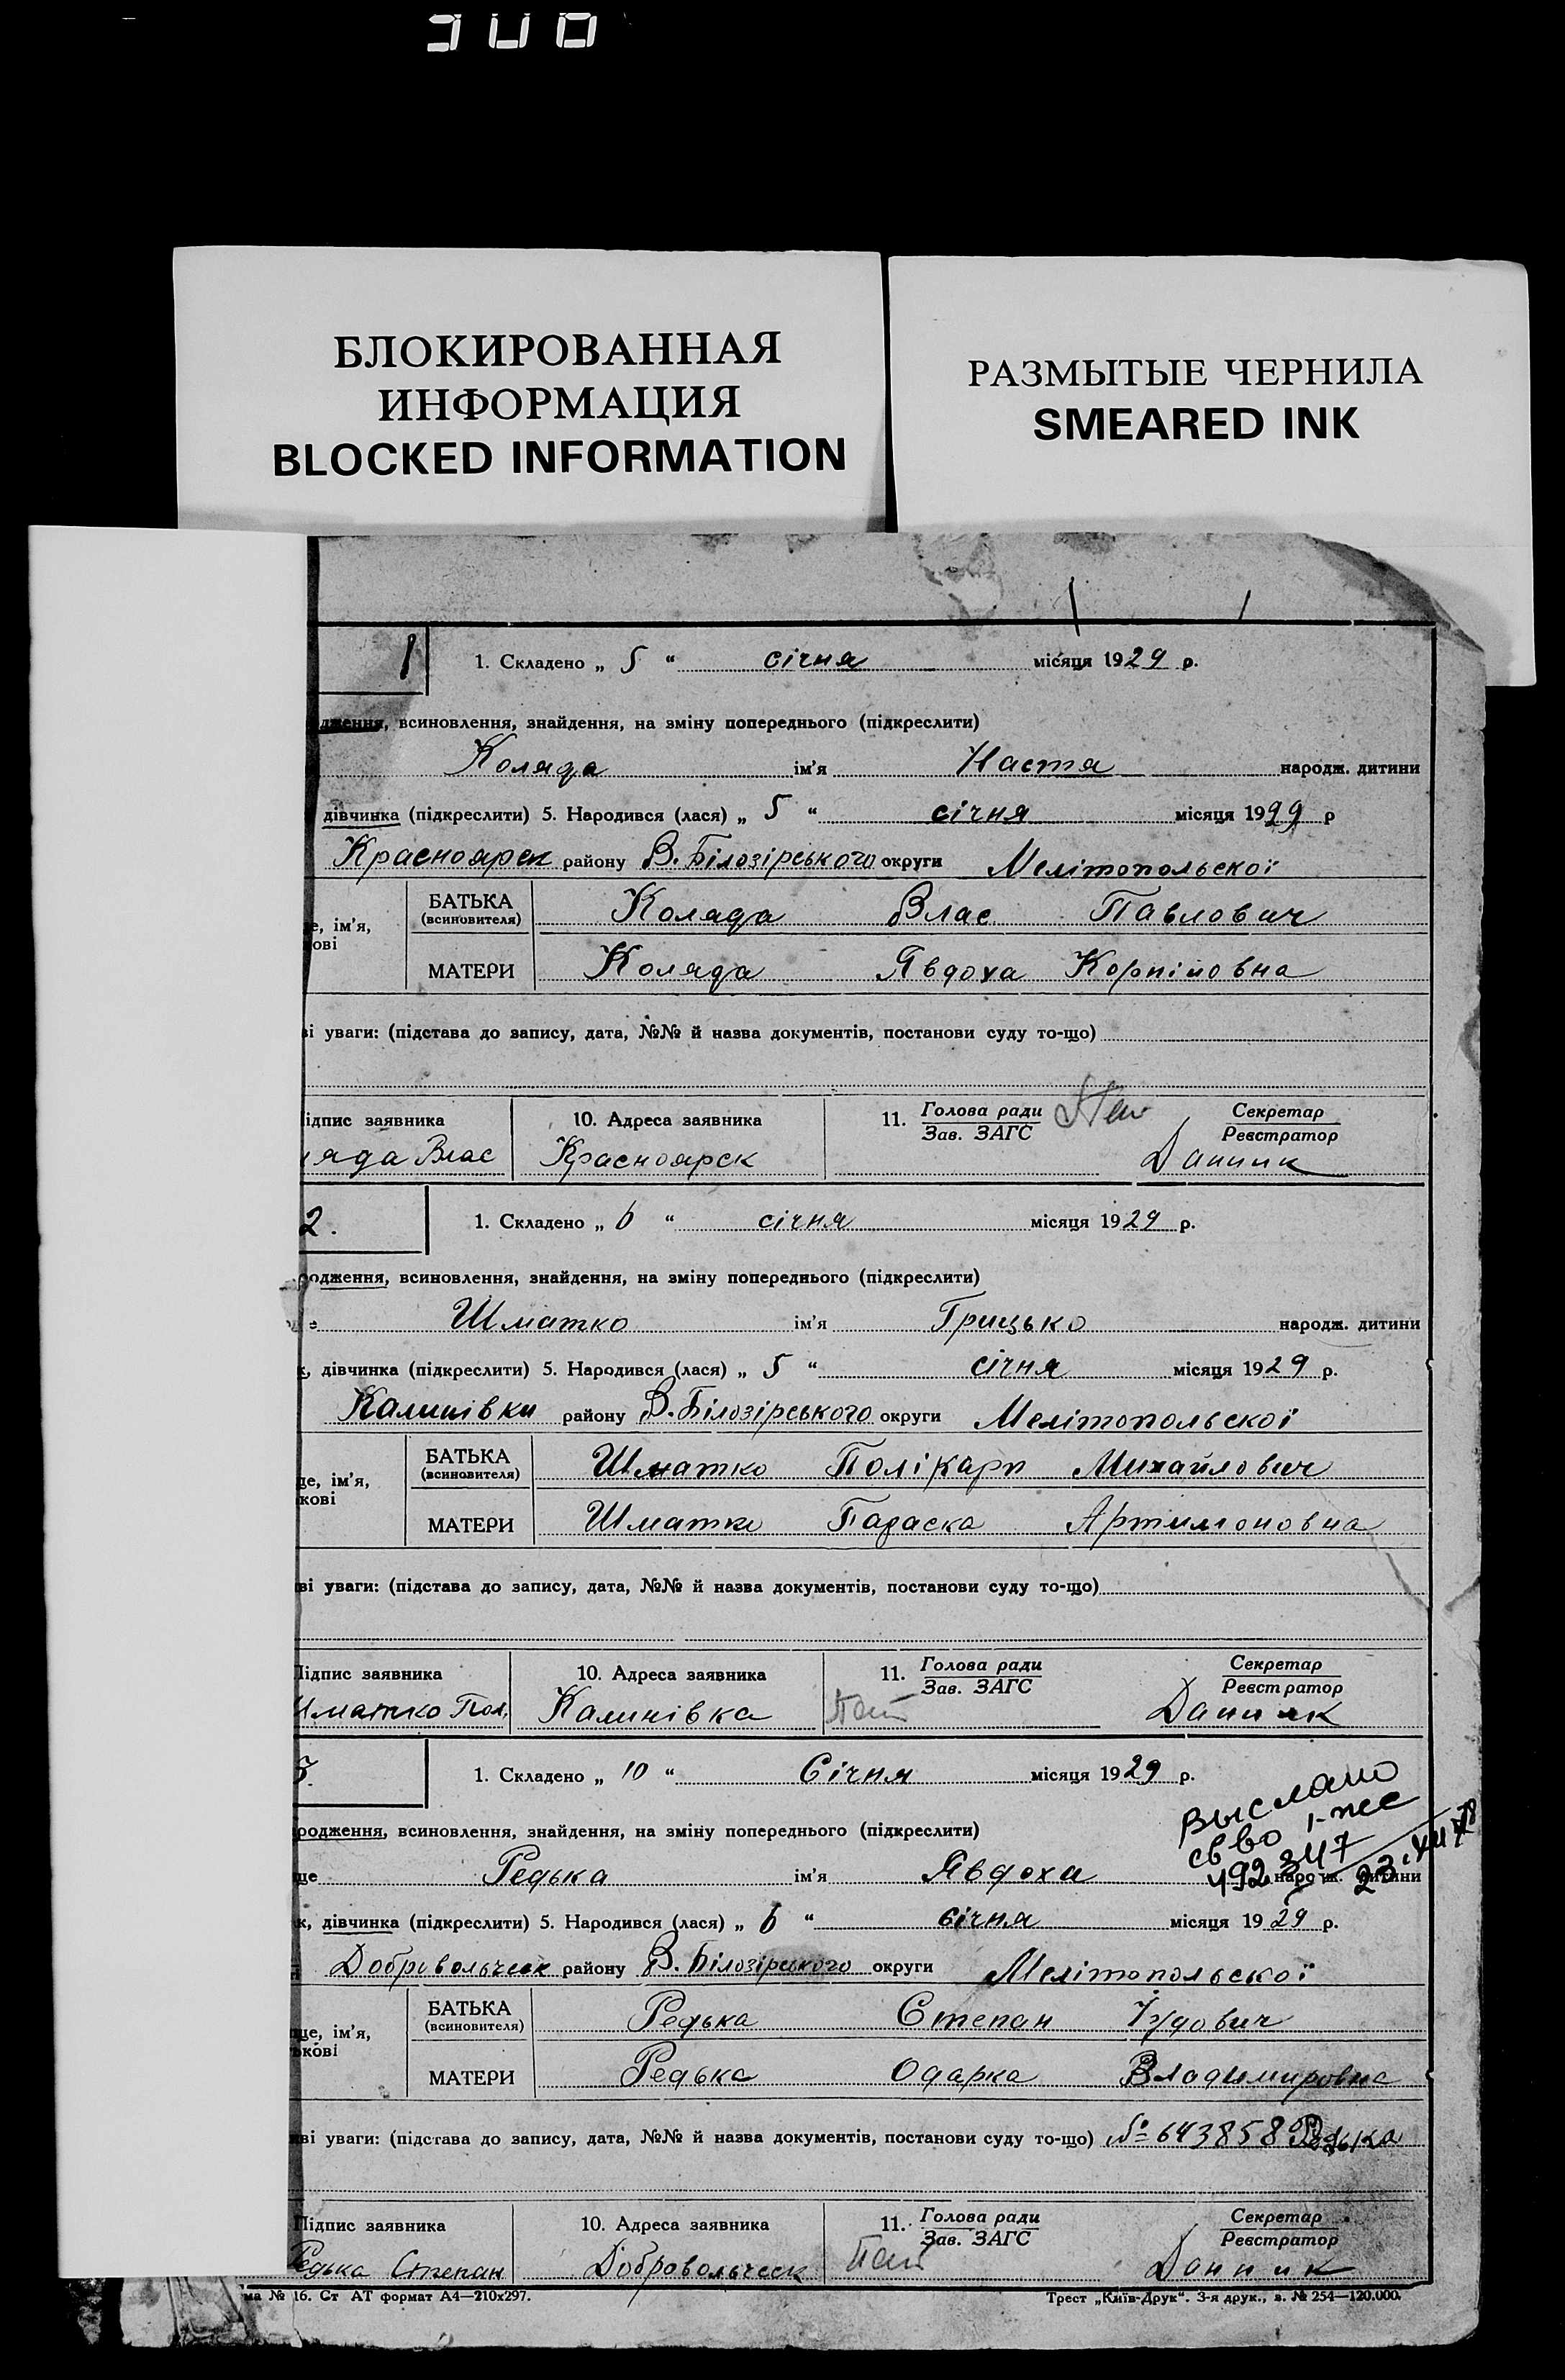 БЛОКИРОВАННАЯ
ИНФОРМАЦИЯ
BLOCKED INFORMATION
РАЗМЫТЫЕ ЧЕРНИЛА
SMEARED INK
1 1. Складено „ 5 “ січня місяця 1929 р.
дження, всиновлення, знайдення, на зміну попереднього (підкреслити)
Коляда ім’я Настя народж. дитини
дівчинка (підкреслити) 5. Народився (лася) „ 5 “ січня місяця 1929 р
Красноярск району В. Білозірського округи Мелітопольскої
е, ім’я, БАТЬКА (всиновителя) Коляда Влас Павлович
ові МАТЕРИ Коляда Явдоха Корніловна
ві уваги: (підстава до запису, дата, №№ й назва документів, постанови суду то-що)
ідпис заявника 10. Адреса заявника 11. Голова ради Зав. ЗАГС Секретар Реєстратор
яда Влас Красноярск Данник
2. 1. Складено „ 6 “ січня місяця 1929 р.
родження, всиновлення, знайдення, на зміну попереднього (підкреслити)
Шматко ім’я Грицько народж. дитини
к, дівчинка (підкреслити) 5. Народився (лася) „ 5 “ січня місяця 1929 р.
Калинівки району В. Білозірського округи Мелітопольскої
ще, ім’я, БАТЬКА (всиновителя) Шматко Полікарп Михайлович
кові МАТЕРИ Шматко Параска Артимоновна
ві уваги: (підстава до запису, дата, №№ й назва документів, постанови суду то-що)
Підпис заявника 10. Адреса заявника 11. Голова ради Зав. ЗАГС Секретар Реєстратор
Шматко Пол. Калинівка Данник
3. 1. Складено „ 10 “ Січня місяця 1929 р.
Выслано
родження, всиновлення, знайдення, на зміну попереднього (підкреслити)
св во
ще Редька ім’я Явдоха народж. дитини
к, дівчинка (підкреслити) 5. Народився (лася) „ 6 “ січня місяця 1929 р.
Добровольческ району В. Білозірського округи Мелітопольської
ще, ім’я, БАТЬКА (всиновителя) Редька Степан
ькові МАТЕРИ Редька Одарка Владимировна
ві уваги: (підстава до запису, дата, №№ й назва документів, постанови суду то-що) № 643858 Редька
Підпис заявника 10. Адреса заявника 11. Голова ради Зав. ЗАГС Секретар Реєстратор
Редька Степан Добровольческ Данник
ма № 16. Ст АТ формат А4—210х297. Трест „Київ-Друк“. 3-я друк., з. № 254—120.000.